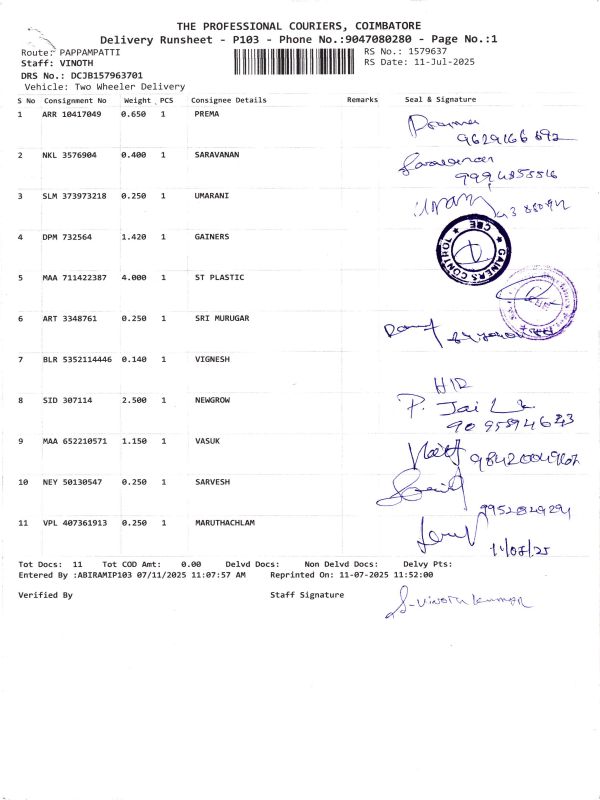 THE PROFESSIONAL COURIERS, COIMBATORE
Delivery Runsheet - P103 - Phone No.:9047080280 - Page No.:1
Route: PAPPAMPATTI
RS No.: 1579637
Staff: VINOTH
RS Date: 11-Jul-2025
DRS No.: DCJB157963701
Vehicle: Two Wheeler Delivery
S No Consignment No Weight PCS Consignee Details Remarks Seal & Signature
1 ARR 10417049 0.650 1 PREMA
2 NKL 3576904 0.400 1 SARAVANAN
3 SLM 373973218 0.250 1 UMARANI
4 DPM 732564 1.420 1 GAINERS
GAINERS CONTROL CBE
5 MAA 711422387 4.000 1 ST PLASTIC
6 ART 3348761 0.250 1 SRI MURUGAR
7 BLR 5352114446 0.140 1 VIGNESH
8 SID 307114 2.500 1 NEWGROW
P. Jai
9 MAA 652210571 1.150 1 VASUK
10 NEY 50130547 0.250 1 SARVESH
9952849291
11 VPL 407361913 0.250 1 MARUTHACHLAM
11/07/25
Tot Docs: 11 Tot COD Amt: 0.00 Delvd Docs: Non Delvd Docs: Delvy Pts:
Entered By :ABIRAMIP103 07/11/2025 11:07:57 AM Reprinted On: 11-07-2025 11:52:00
Verified By Staff Signature
S-Vinoth kumar